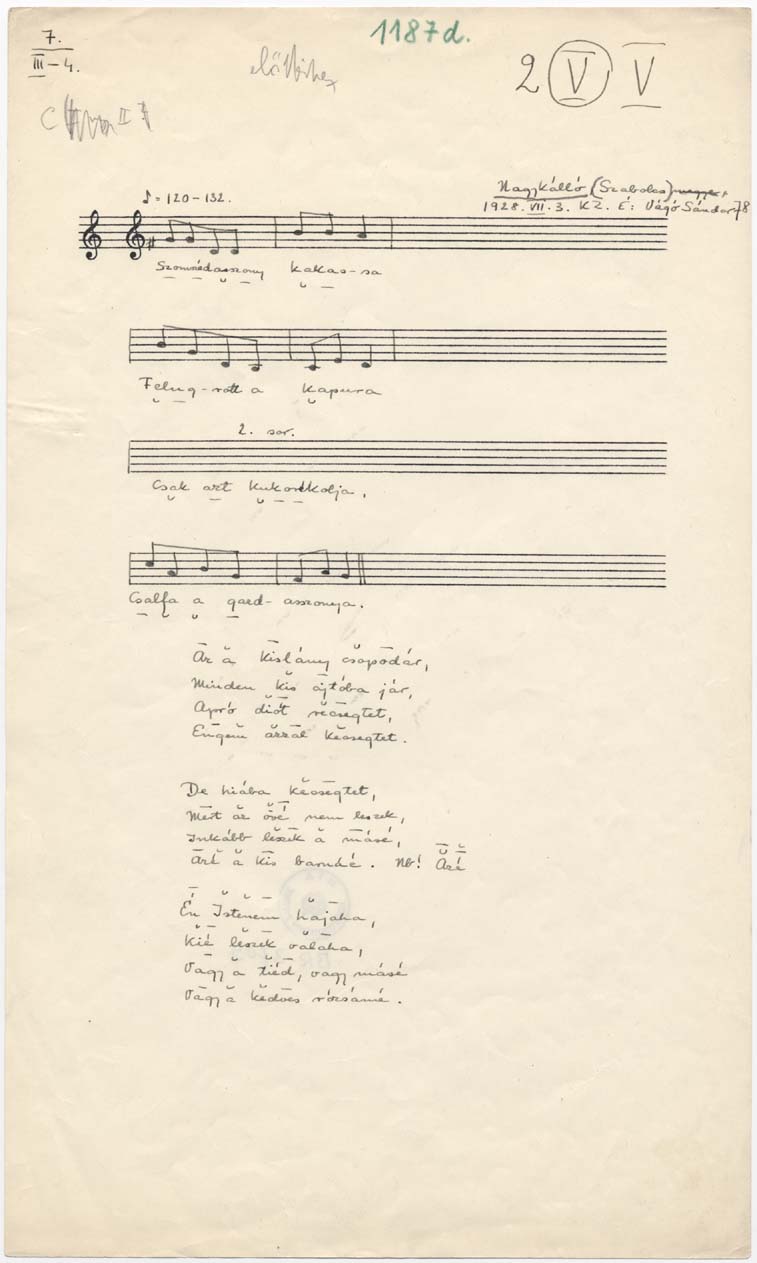 7.
III-4.
1187d.
előttihez
2 V V
♪ = 120-132.
Nagykálló (Szabolcs) megye
1928. VII. 3. KZ. É: Vágó Sándor 78
Szomszédasszony kakas-sa
Felug-rott a kapura
2. sor.
Csak azt kukorikolja,
Csalfa a gazd-asszonya.
Az a kislány csapodár,
Minden kis ajtóba jár,
Apró diót récsegtet,
Engem azzal kecsegtet.
De hiába kecsegtet,
Mert az övé nem leszek,
Inkább leszek a másé,
Azé a kis barnáé. Nb! Azé
Én Istenem hájaha,
Kié leszek válaha,
Vagy a tiéd, vagy másé
Vagy a kedves rózsámé.